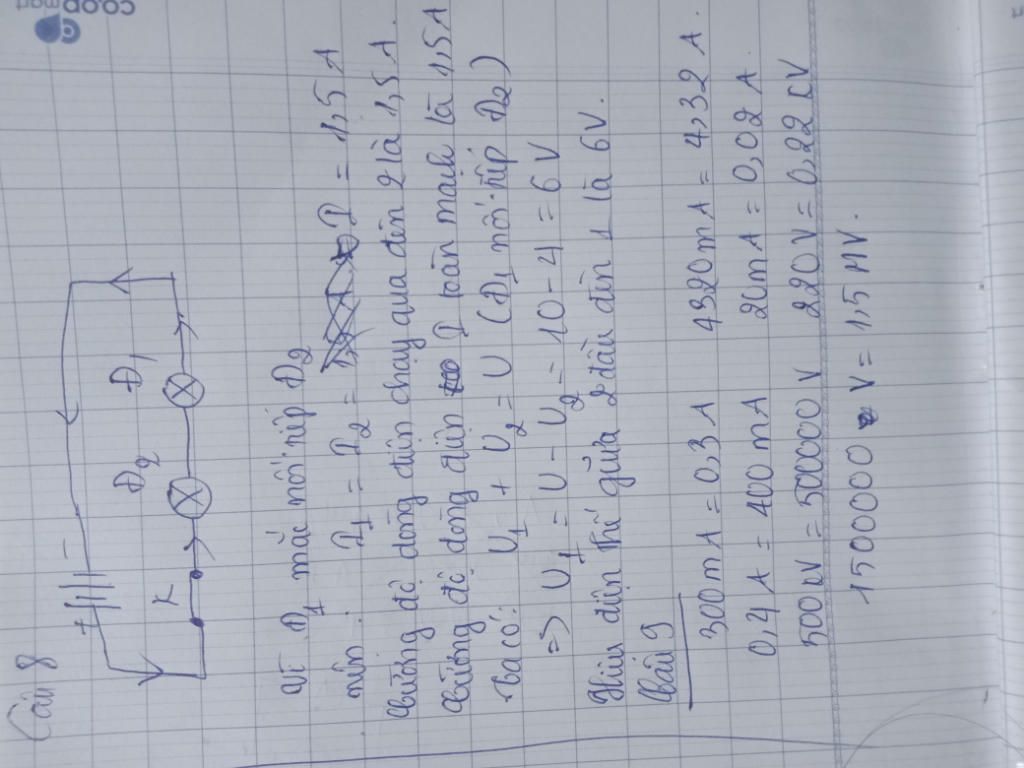 Câu 8
+ -
K
Đ2
Đ1
Vì Đ1 mắc nối tiếp Đ2
nên: I1 = I2 = I = 1,5 A
Cường độ dòng điện chạy qua đèn 2 là 1,5 A.
Cường độ dòng điện I toàn mạch là 1,5A
Ta có: U1 + U2 = U (Đ1 nối tiếp Đ2)
=> U1 = U - U2 = 10 - 4 = 6 V
Hiệu điện thế giữa 2 đầu đèn 1 là 6V.
Câu 9
300mA = 0,3 A 4320mA = 4,32 A.
0,4 A = 400 mA 20mA = 0,02 A
500kV = 500000 V 220V = 0,22 kV
1500000 V = 1,5 MV.
co.op mart